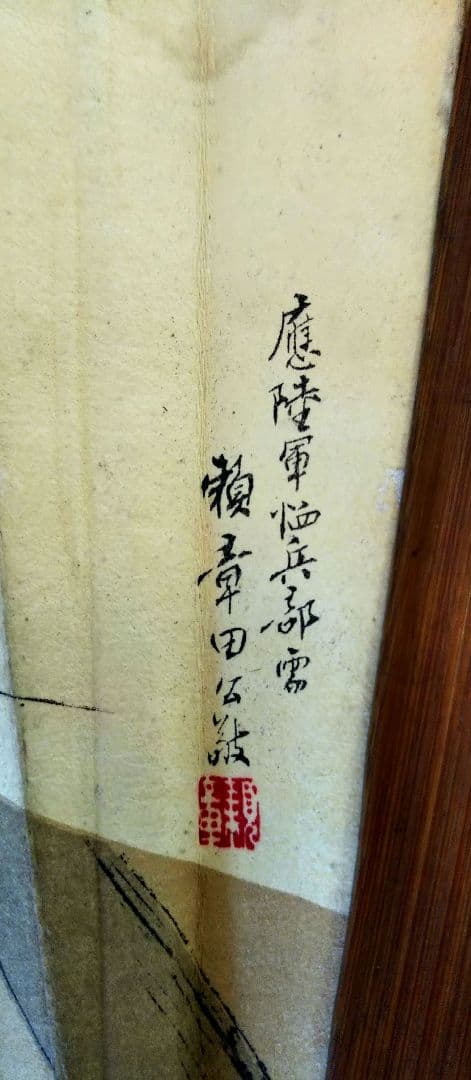 應陸軍恤兵部需
頼章田公